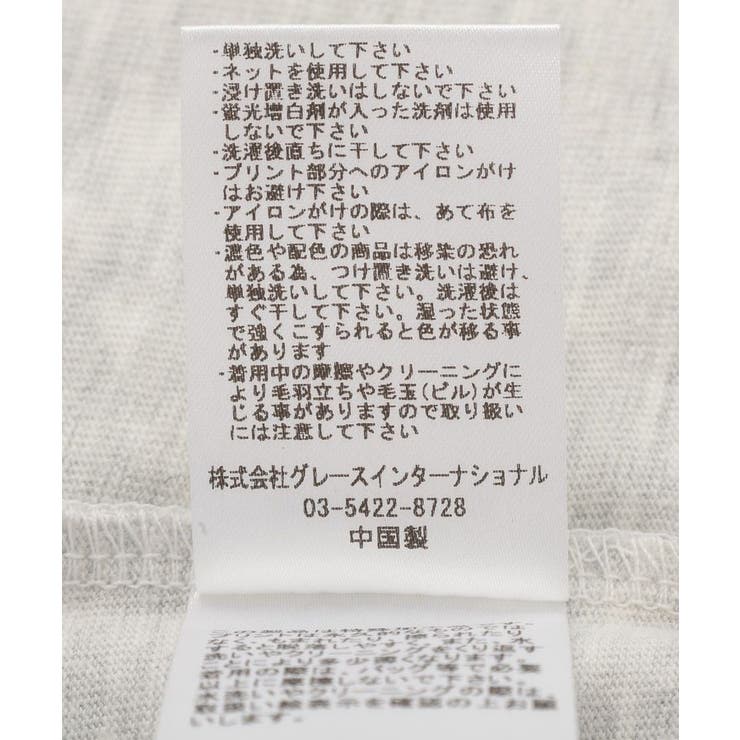 ・単独洗いして下さい
・ネットを使用して下さい
・浸け置き洗いはしないで下さい
・蛍光増白剤が入った洗剤は使用
しないで下さい
・洗濯後直ちに干して下さい
・プリント部分へのアイロンがけ
はお避け下さい
・アイロンがけの際は、あて布を
使用して下さい
・濃色や配色の商品は移染の恐れ
がある為、つけ置き洗いは避け、
単独洗いして下さい。洗濯後は
すぐ干して下さい。湿った状態
で強くこすられると色が移る事
があります
・着用中の摩擦やクリーニングに
より毛羽立ちや毛玉(ピル)が生
じる事がありますので取り扱い
には注意して下さい
株式会社グレースインターナショナル
03-5422-8728
中国製